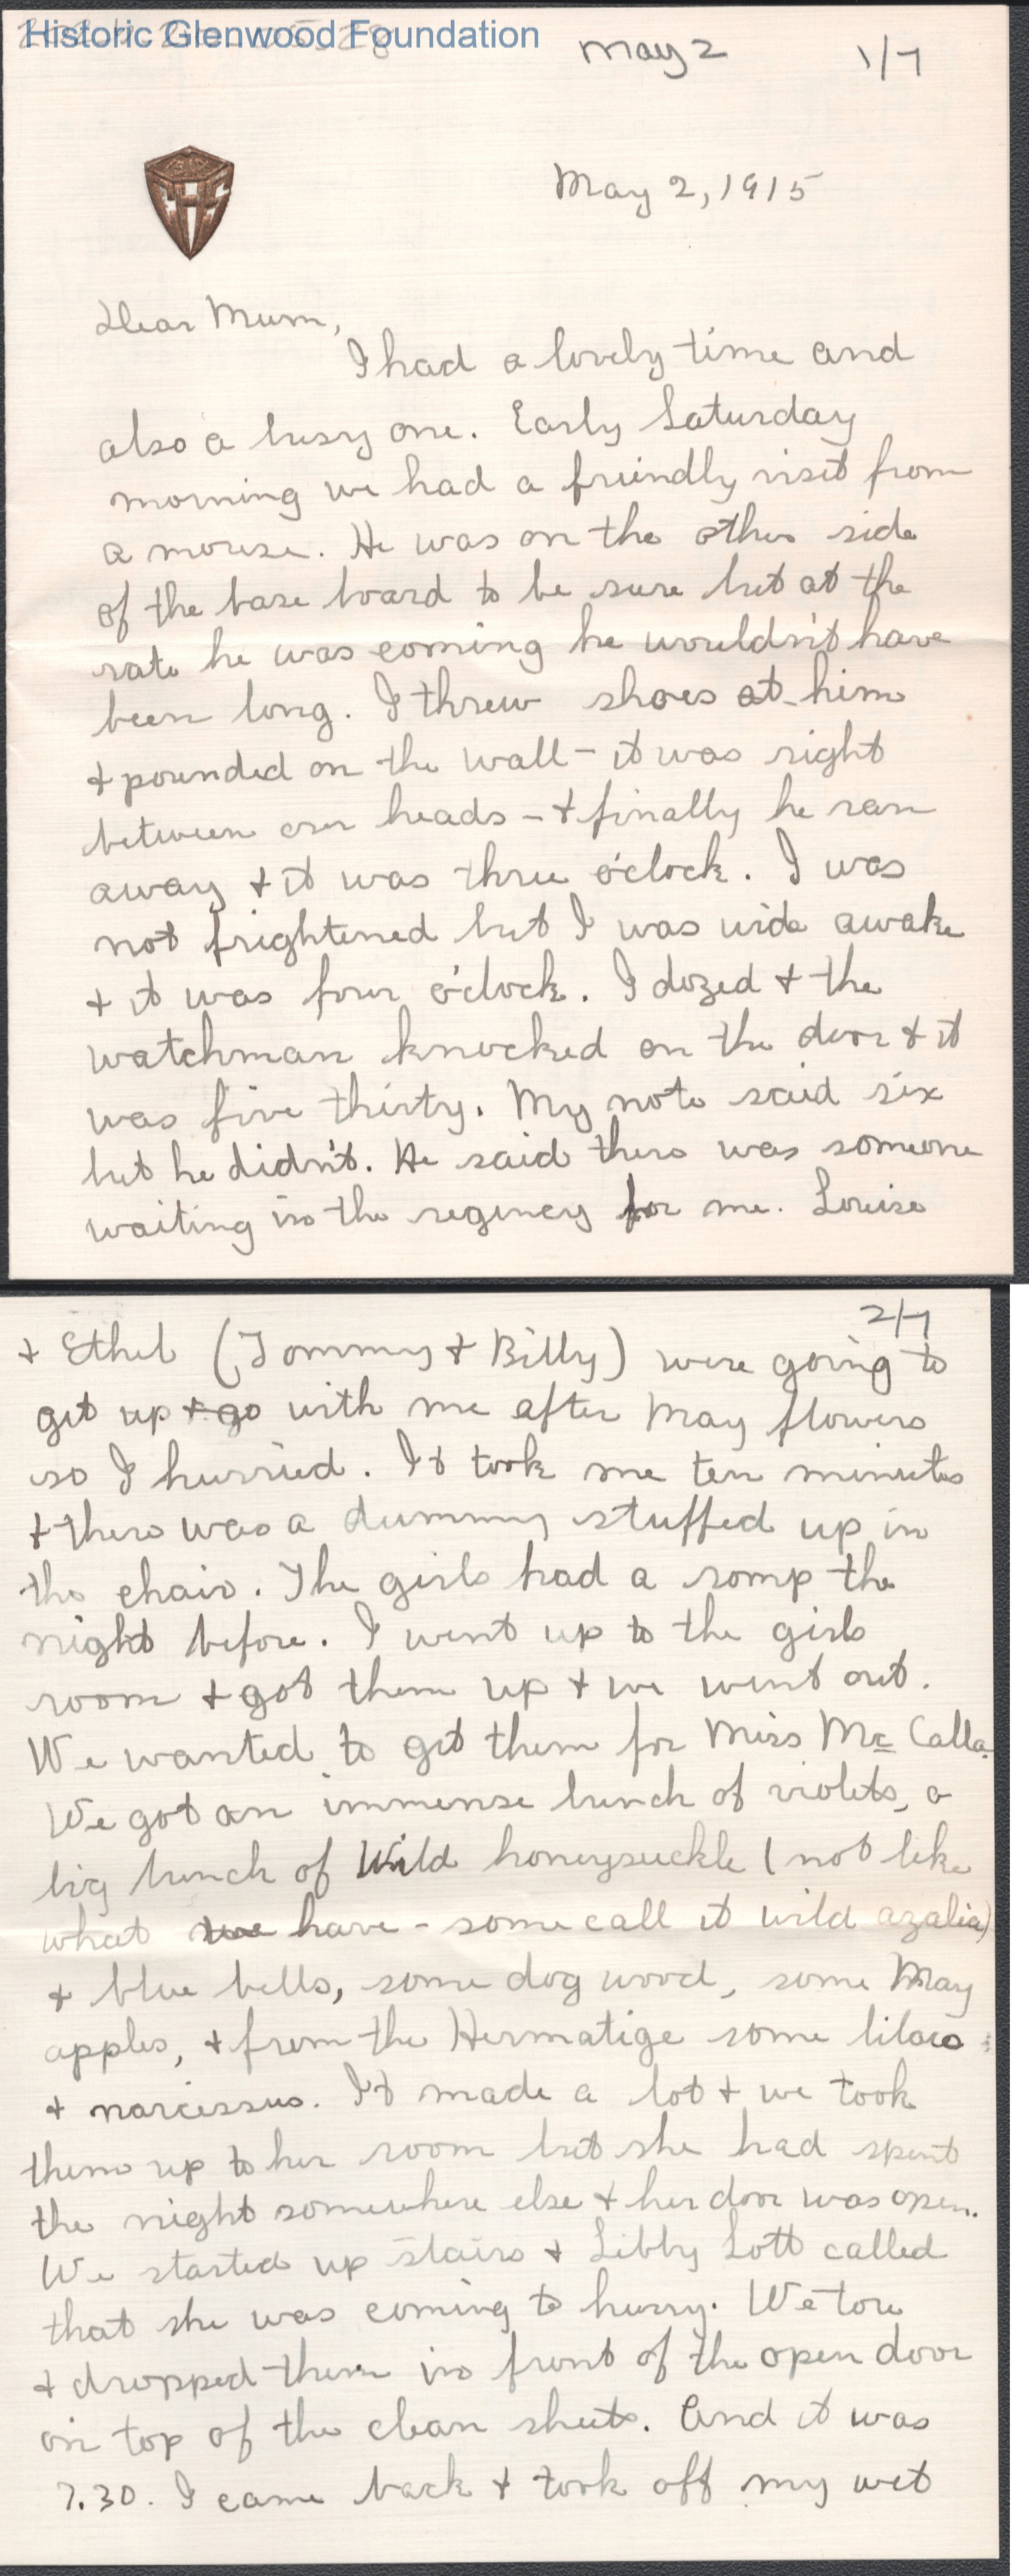 Historic Glenwood Foundation
May 2
1/7
May 2, 1915
Dear Mum,
I had a lovely time and
also a busy one. Early Saturday
morning we had a friendly visit from
a mouse. He was on the other side
of the base board to be sure but at the
rate he was coming he wouldn't have
been long. I threw shoes at him
+ pounded on the wall - it was right
between our heads - + finally he ran
away + it was three o'clock. I was
not frightened but I was wide awake
+ it was four o'clock. I dozed + the
watchman knocked on the door + it
was five thirty. My note said six
but he didn't. He said there was someone
waiting in the regency for me. Louise
2/7
+ Ethel (Tommy + Billy) were going to
get up + go with me after May flowers
so I hurried. It took me ten minutes
+ there was a dummy stuffed up in
the chair. The girls had a romp the
night before. I went up to the girls
room + got them up + we went out.
We wanted to get them for Miss Mc Calla.
We got an immense bunch of violets, a
big bunch of Wild honeysuckle (not like
what we have - some call it wild azalia)
+ blue bells, some dog wood, some May
apples, + from the Hermatige some lilacs
+ narcissus. It made a lot + we took
them up to her room but she had spent
the night somewhere else + her door was open.
We started up stairs + Libby Lott called
that she was coming to hurry. We tore
+ dropped them in front of the open door
on top of the clean sheets. And it was
7.30. I came back + took off my wet